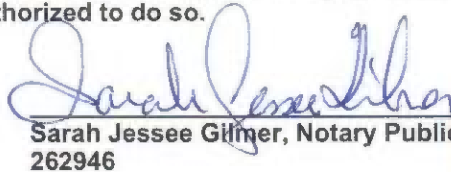 thorized to do so.
Sarah Jessee Gilmer
Sarah Jessee Gilmer, Notary Public
262946